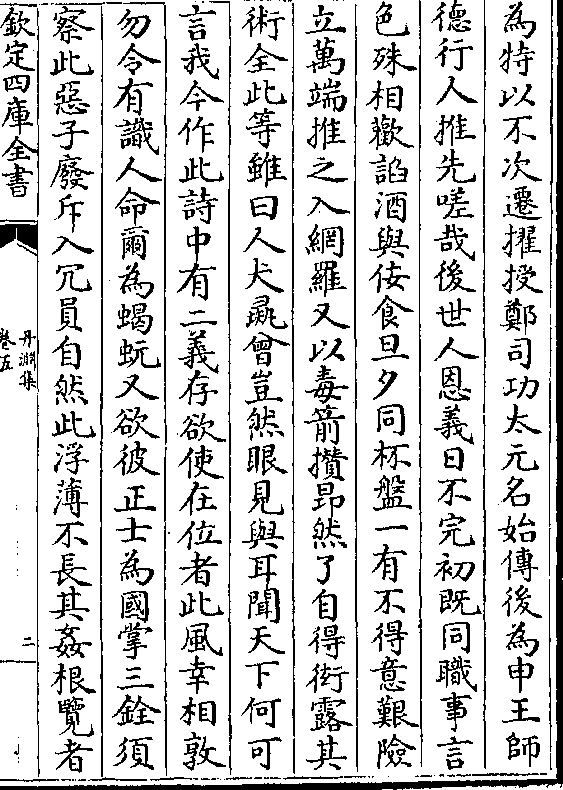 為特以不次遷擢授鄭司功太元名始傳後為申王師
德行人推先嗟哉後世人恩義日不完初既同職事言
色殊相歡諂酒與佞食旦夕同杯盤一有不得意艱險
立萬端推之入網羅又以毒箭攢昂然了自得衒露其
術全此等雖曰人犬彘曾豈然眼見與耳聞天下何可
言我今作此詩中有二義存欲使在位者此風幸相敦
勿令有識人命爾為蝎蚖又欲彼正士為國掌三銓須
察此惡子廢斥入冗員自然此浮薄不長其姦根覽者
欽定四庫全書
丹淵集
卷五
二